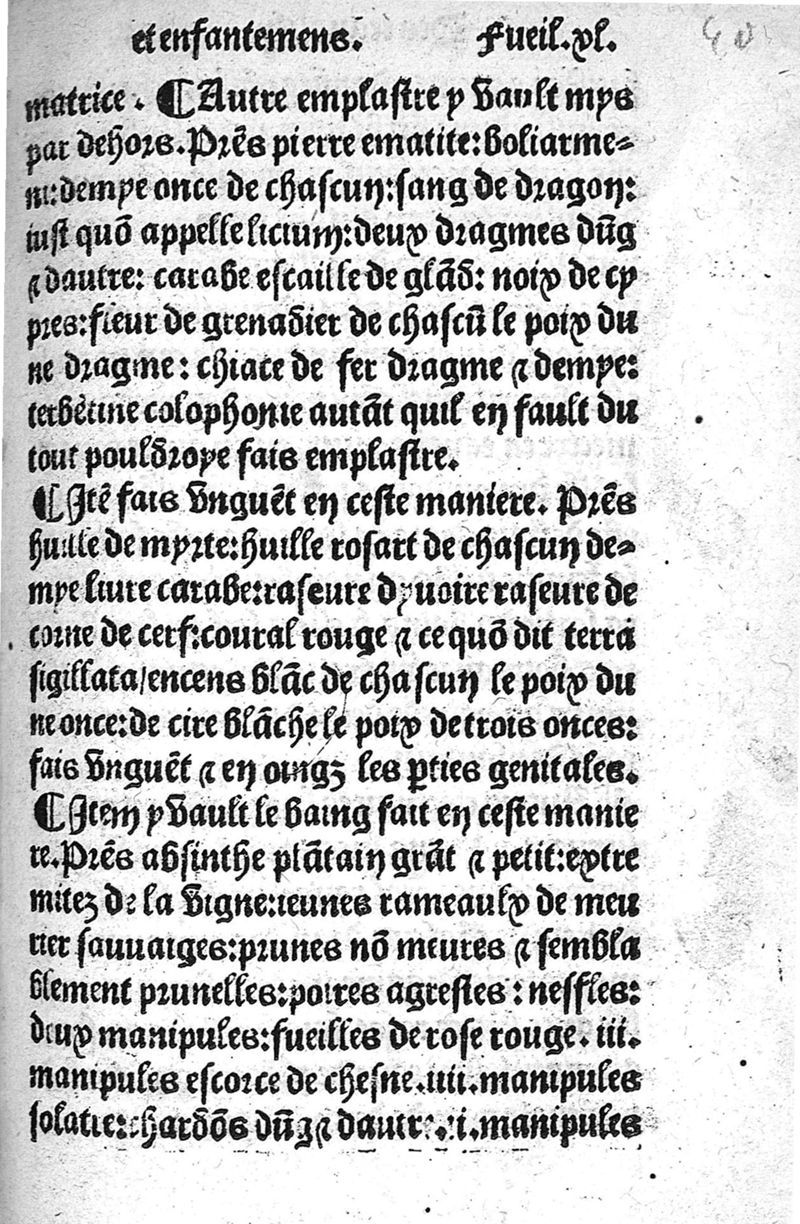 et enfantemens. Fueil.xl. 40
matrice. ¶Autre emplastre y vault mys
par dehors. Prẽs pierre ematite: boliarme-
ni: demye once de chascun: sang de dragon:
iust quõ appelle licium: deux dragmes dũg
⁊ dautre: carabe escaille de glãd: noix de cy
pres: fleur de grenadier de chascũ le poix du
ne dragme: chiate de fer dragme ⁊ demye:
terbẽtine colophonie autãt quil en fault du
tout pouldroye fais emplastre.
¶Itẽ fais vnguẽt en ceste maniere. Prẽs
huille de myrte: huille rosart de chascun de-
mye liure carabe: raseure dyuoire raseure de
corne de cerf: coural rouge ⁊ ce quõ dit terra
sigillata/encens blãc de chascun le poix du
ne once: de cire blãche le poix de trois onces:
fais vnguẽt ⁊ en oingz les ꝑties genitales.
¶Item y vault le baing fait en ceste manie
re. Prẽs absinthe plãtain grãt ⁊ petit: extre
mitez de la vigne: ieunes rameaulx de meu
rier sauuaiges: prunes nõ meures ⁊ sembla
blement prunelles: poires agrestes: neffles:
deux manipules: fueilles de rose rouge. iii.
manipules escorce de chesne. iiii. manipules
solatre: chardõs dũg ⁊ dautre manipules